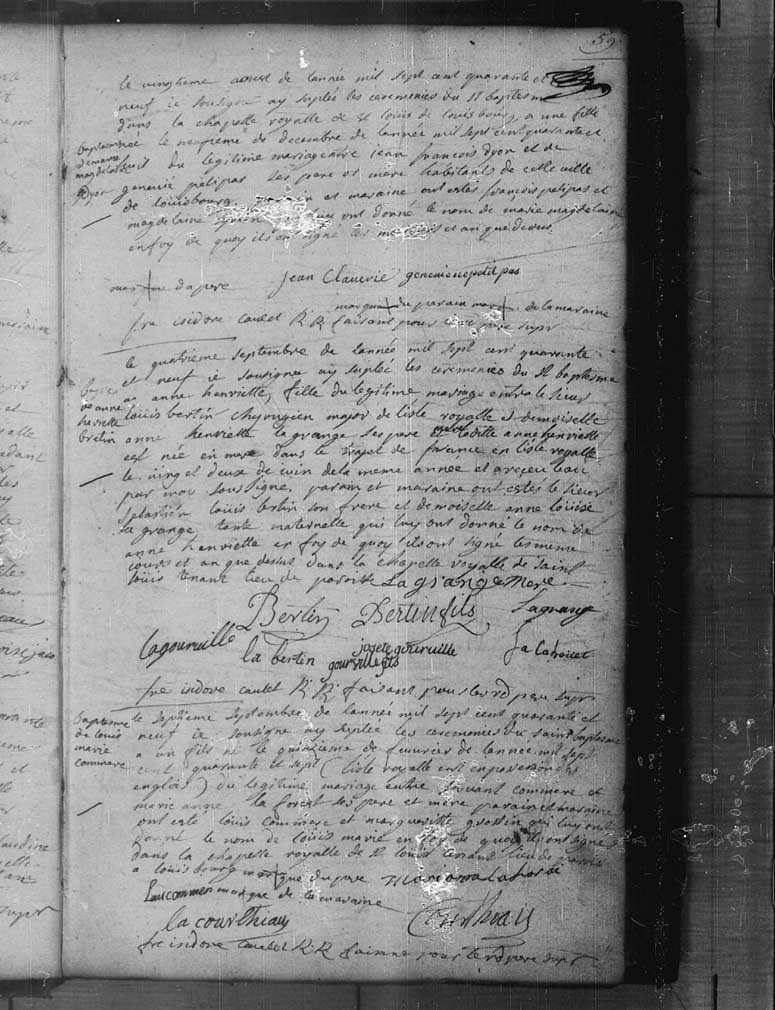 59
le vingtieme aoust de lannée mil sept cent quarante et
neuf ie sousigné ay suplée les ceremonies du st baptesme
dans la chapelle royalle de st louis de louisbourg a une fille
baptesme
de marie
magdelaine
dyon
née le neufieme de decembre de lannée mil sept cent quarante et
huit du legitime mariage entre jean francois dyon et de
genevie petipas ses pere et mere habitants de cette ville
de louisbourg parain et maraine ont estes françois petipas et
magdelaine luy ont donné le nom de marie magdelaine
en foy de quoy ils on signé les mesme et an que desus
marque du pere Jean Claverie genevieve petit pas
marque du parain marque de la maraine
fre isidore caulet R. R. faisant pour le rd pere supr
le quatrieme septembre de lannée mil sept cent quarante
et neuf ie sousigne ay suplée les ceremonies du st baptesme
anne
henriette
bretin
a anne henriette, fille du legitime mariage entre le sieur
louis bertin chyrurgien major de lisle royalle et demoiselle
anne henriette lagrange ses pere et mere laditte anne henriette
est née en mer dans le trajet de france en lisle royalle
le ving et deux de iuin de la meme année et a reçeu leau
par mou sousigne, parain et maraine ont estés le sieur
sebastien louis bertin son frere et demoiselle anne louise
la grange tante maternelle qui luy ont donné le nom de
anne henriette en foy de quoy ils ont signé les meme
iours et an que desus dans la chapelle royalle de saint
louis tenant lieu de paroisse Lagrange Mere
Bertin Bertin fils Lagrange
lagourville la bertin josete gourville
gourville fils
fre isidore caulet R. R. faisant pour le rd pere supr
baptesme
de louis
marie
commere
le septieme septembre de lannée mil sept cent quarante et
neuf ie sousigne ay suplée les ceremonies du saint baptesme
a un fils né le quinzieme de feuvrier de lannée mil sept
cent quarante et sept (lisle royalle ent en possession des
englois) du legitime mariage entre commere et
marie ange la forest ses pere et mere parain et maraine
ont esté louis commere et margueritte grossin qui luy ont
donné le nom de louis marie en foy de quoy ils ont signe
dans la chapelle royalle de st louis tenant lieu de
a louisbourg marque du pere
marque de la maraine
la courthiau Courthiau
fre isidore caulet R. R. faisant pour le rd pere supr